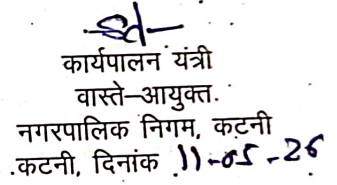 कार्यपालन यंत्री
वास्ते–आयुक्त.
नगरपालिक निगम, कटनी
कटनी, दिनांक 11-05-26